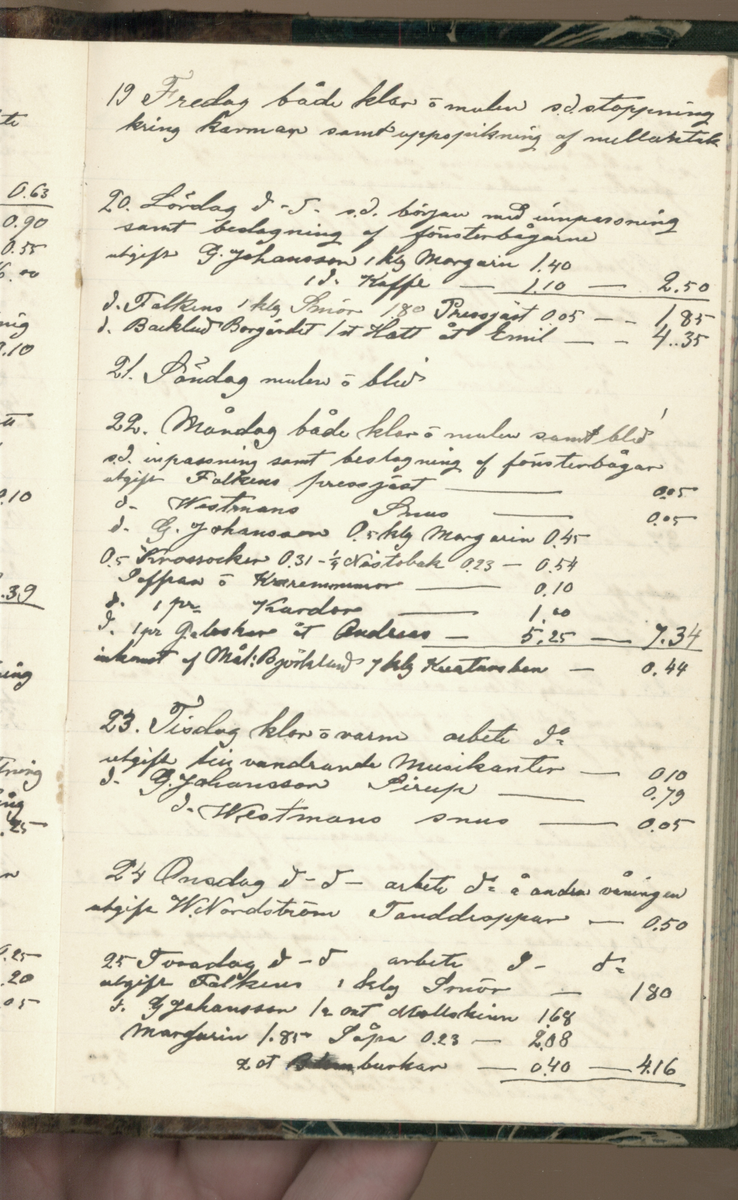 te
0.63
0.90
0.55
0.10
0.10
.39
ning
.25
0.25
.20
05
19 Fredag både klar ō mulen s.d. stoppning
kring karmar samt uppspikning af mellan
20. Lördag d-d- s.d. början med inpassning
samt beslagning af fönsterbågarne
utgift G. Johansson 1 klg Margarin 1.40
1 d. Kaffe — 1.10 — 2.50
d. Falkens 1 klg Smör 1.80 Pressjäst 0.05 — — 1.85
d. Backlund Borgårdet 1 st Hatt åt Emil — — 4.35
21. Söndag mulen ō blid
22. Måndag både klar ō mulen samt blid
s.d. inpassning samt beslagning af fönsterbågar
utgift Falkens pressjäst — 0.05
d- Westmans Snus — 0.05
d. G. Johansson 0.5 klg Margarin 0.45
0.5 Krossocker 0.31 - ¼ Nästobak 0.23 — 0.54
Saffran ō Kardemumor — 0.10
d. 1 pr Kardor — 1.00
d. 1 pr Galosher åt Andreas — 5.25 — 7.34
inkomst af Mål: Björklund 7 klg Kreatursben — 0.44
23. Tisdag klar ō varm arbete do
utgift till vandrande Musikanter — 0.10
d. G. Johansson Sirup — 0.79
d. Westmans snus — 0.05
24 Onsdag d-d- arbete do å andra våningen
utgift W. Nordström Tanddroppar — 0.50
25 Torsdag d-d arbete d- do
utgift Falkens 1 klg Smör — 1.80
d. G Johansson 1/2 Mollskinn 1.68
Margarin 1.85 Såpa 0.23 — 2.08
2 st burkar — 0.40 — 4.16